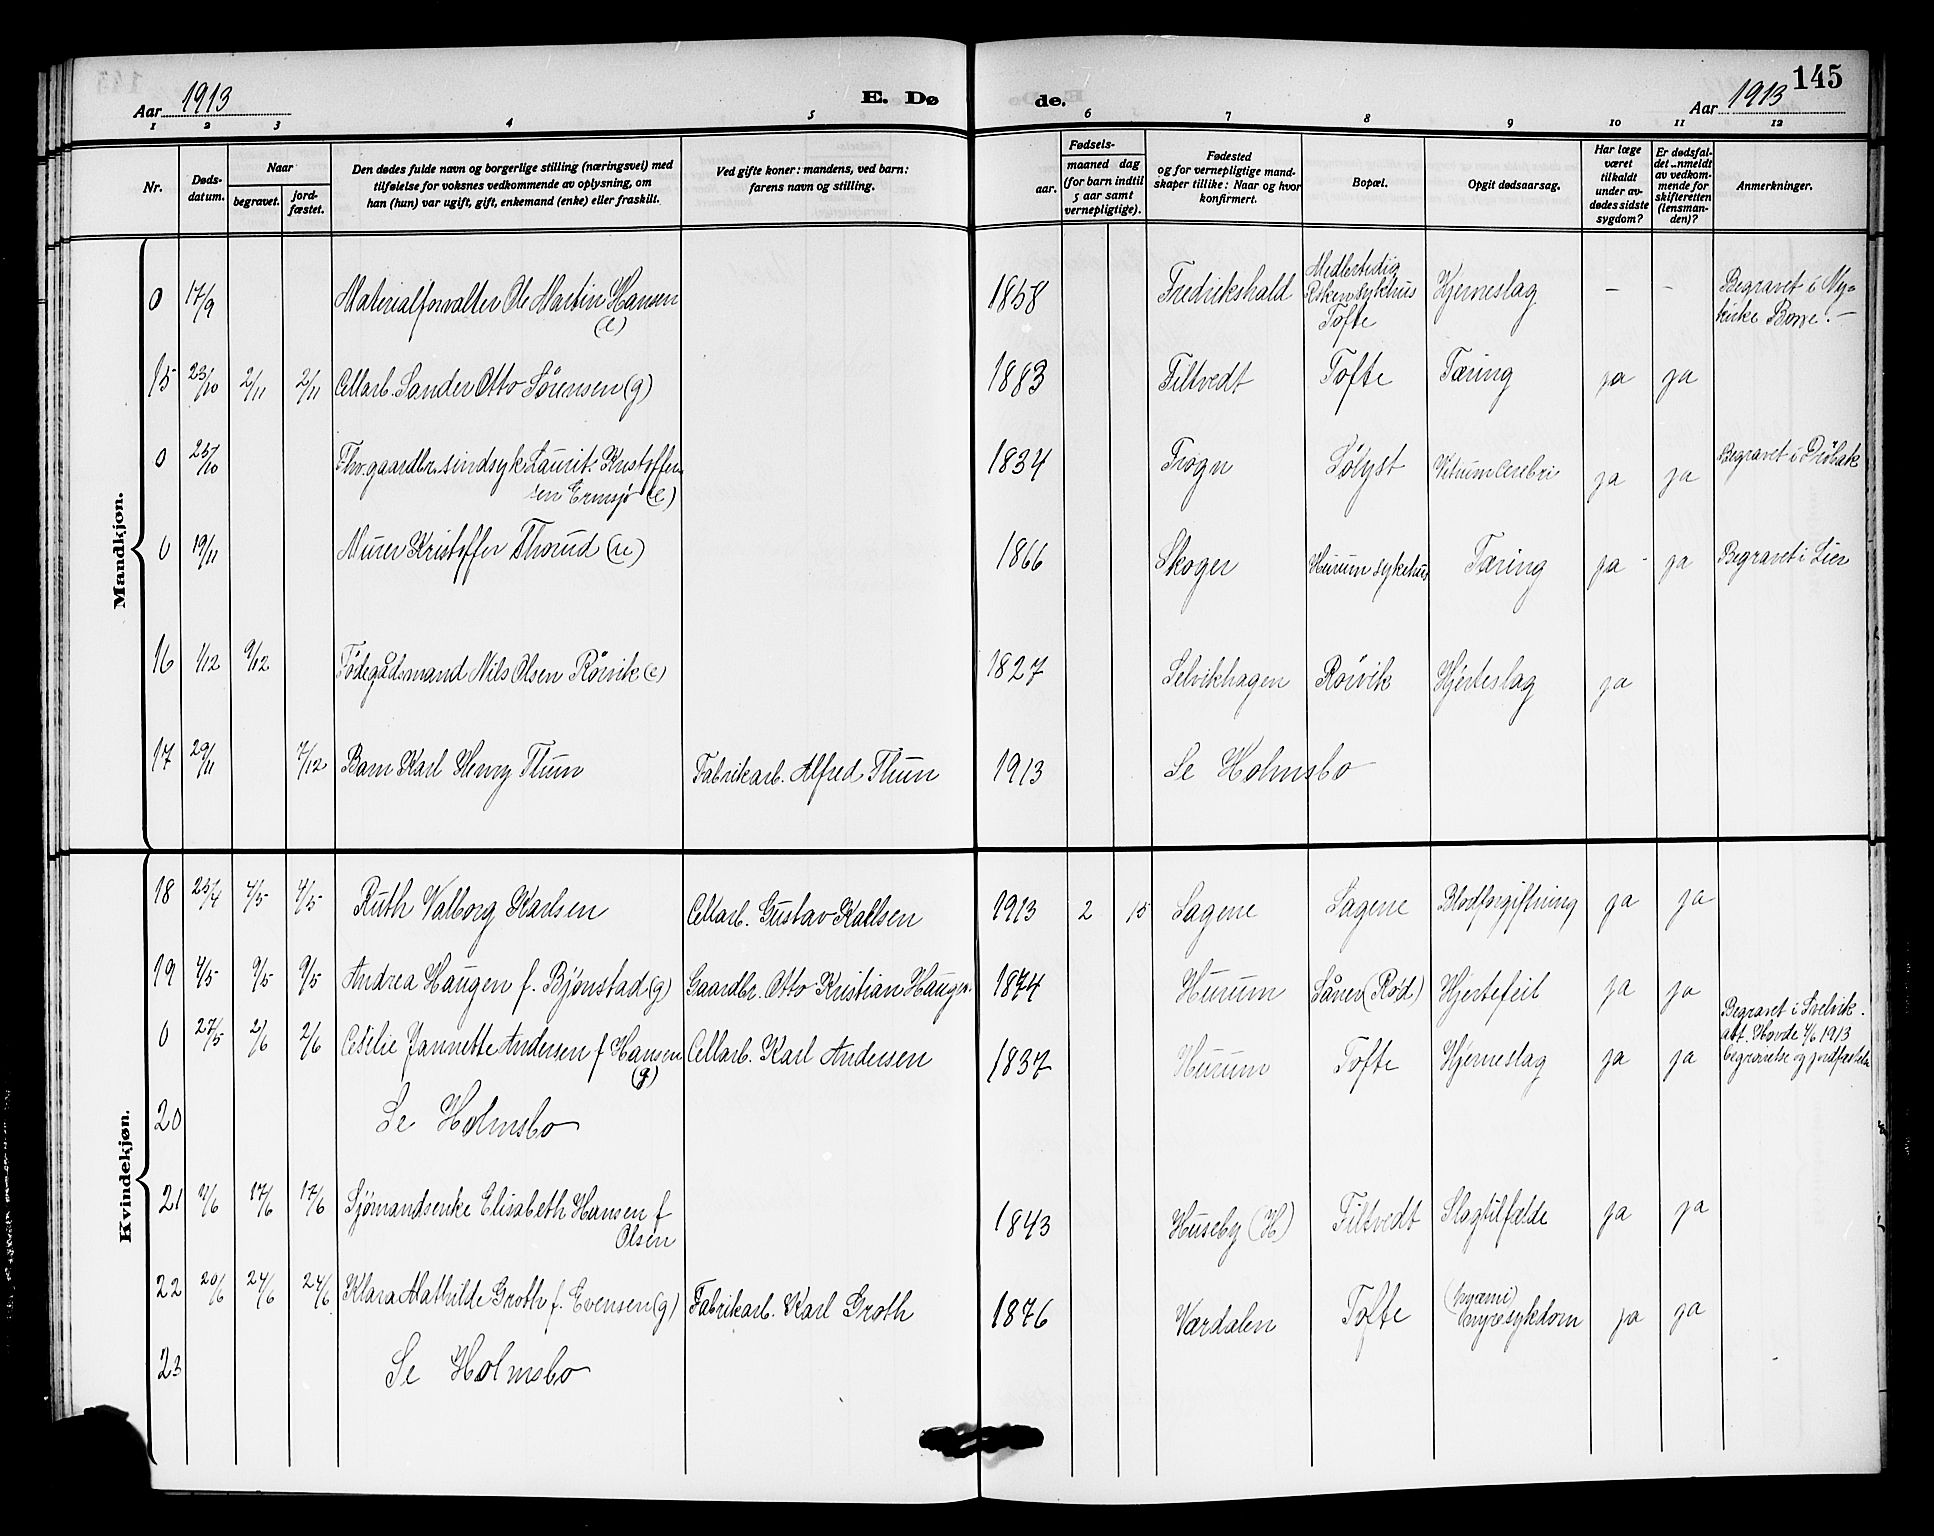 145
Aar 1913
E. Dø
de.
Aar 1913
1 2 3 4 5 6 7 8 9 10 11 12
Nr.
Døds-
datum.
Naar
begravet.
jord-
fæstet.
Den dødes fulde navn og borgerlige stilling (næringsvei) med
tilføielse for voksnes vedkommende av oplysning, om
han (hun) var ugift, gift, enkemand (enke) eller fraskilt.
Ved gifte koner: mandens, ved barn:
farens navn og stilling.
Fødsels-
aar.
maaned dag
(for barn indtil
5 aar samt
vernepligtige).
Fødested
og for vernepligtige mand-
skaper tillike: Naar og hvor
konfirmert.
Bopæl.
Opgit dødsaarsag.
Har læge
været
tilkaldt
under av-
dødes sidste
sygdom?
Er dødsfal-
det anmeldt
av vedkom-
mende for
skifteretten
(lensman-
den)?
Anmerkninger.
Mandkjøn.
0 17/9 Materialforvalter Ole Martin Hansen (e) 1858 Fredrikshald Midlertidig Sykehus Tofte Hjerneslag — — Begravet i Nykirke Borre. —
15 23/10 2/11 2/11 Cellarb. Sander Otto Sørensen (g) 1883 Filtvedt Tofte Tæring ja ja
0 25/10 Fhv. gaardbr. sindsyk Laurits Kristoffersen Ermsjø (e) 1834 Frogn Solyst Vitium Cerebri ja ja Begravet i Drøbak
0 19/11 Murer Kristoffer Thorud (u) 1866 Skoger Hurum sykehus Tæring ja - ja Begravet i Lier
16 1/12 9/12 Fødegådsmand Nils Olsen Røivik (e) 1827 Selvikhagen Røivik Hjerteslag ja
17 29/11 7/12 Barn Karl Henry Thun Fabrikarb. Alfred Thun 1913 Se Holmsbo
Kvindekjøn.
18 23/4 4/5 4/5 Ruth Valborg Karlsen Cellarb. Gustav Karlsen 1913 2 15 Sagene Sagene Blodforgiftning ja ja
19 4/5 9/5 9/5 Andrea Haugen f. Bjønstad (g) Gaardbr. Otto Kristian Haugen 1874 Hurum Såner (Rød) Hjertefeil ja ja
0 27/5 2/6 2/6 Cesilie Jannette Andersen f Hansen (g) Cellarb. Karl Andersen 1837 Hurum Tofte Hjerneslag ja ja Begravet i Svelvik. 1913 begravelse og jordfæstelse
20 Se Holmsbo
21 17/6 17/6 Sjømandsenke Elisabeth Hansen f Olsen 1843 Huseby (H) Filtvedt Slagtilfælde ja ja
22 20/6 24/6 24/6 Klara Mathilde Groth f. Evensen (g) Fabrikarb. Karl Groth 1876 Værdalen Tofte nyresykdom ja ja
23 Se Holmsbo